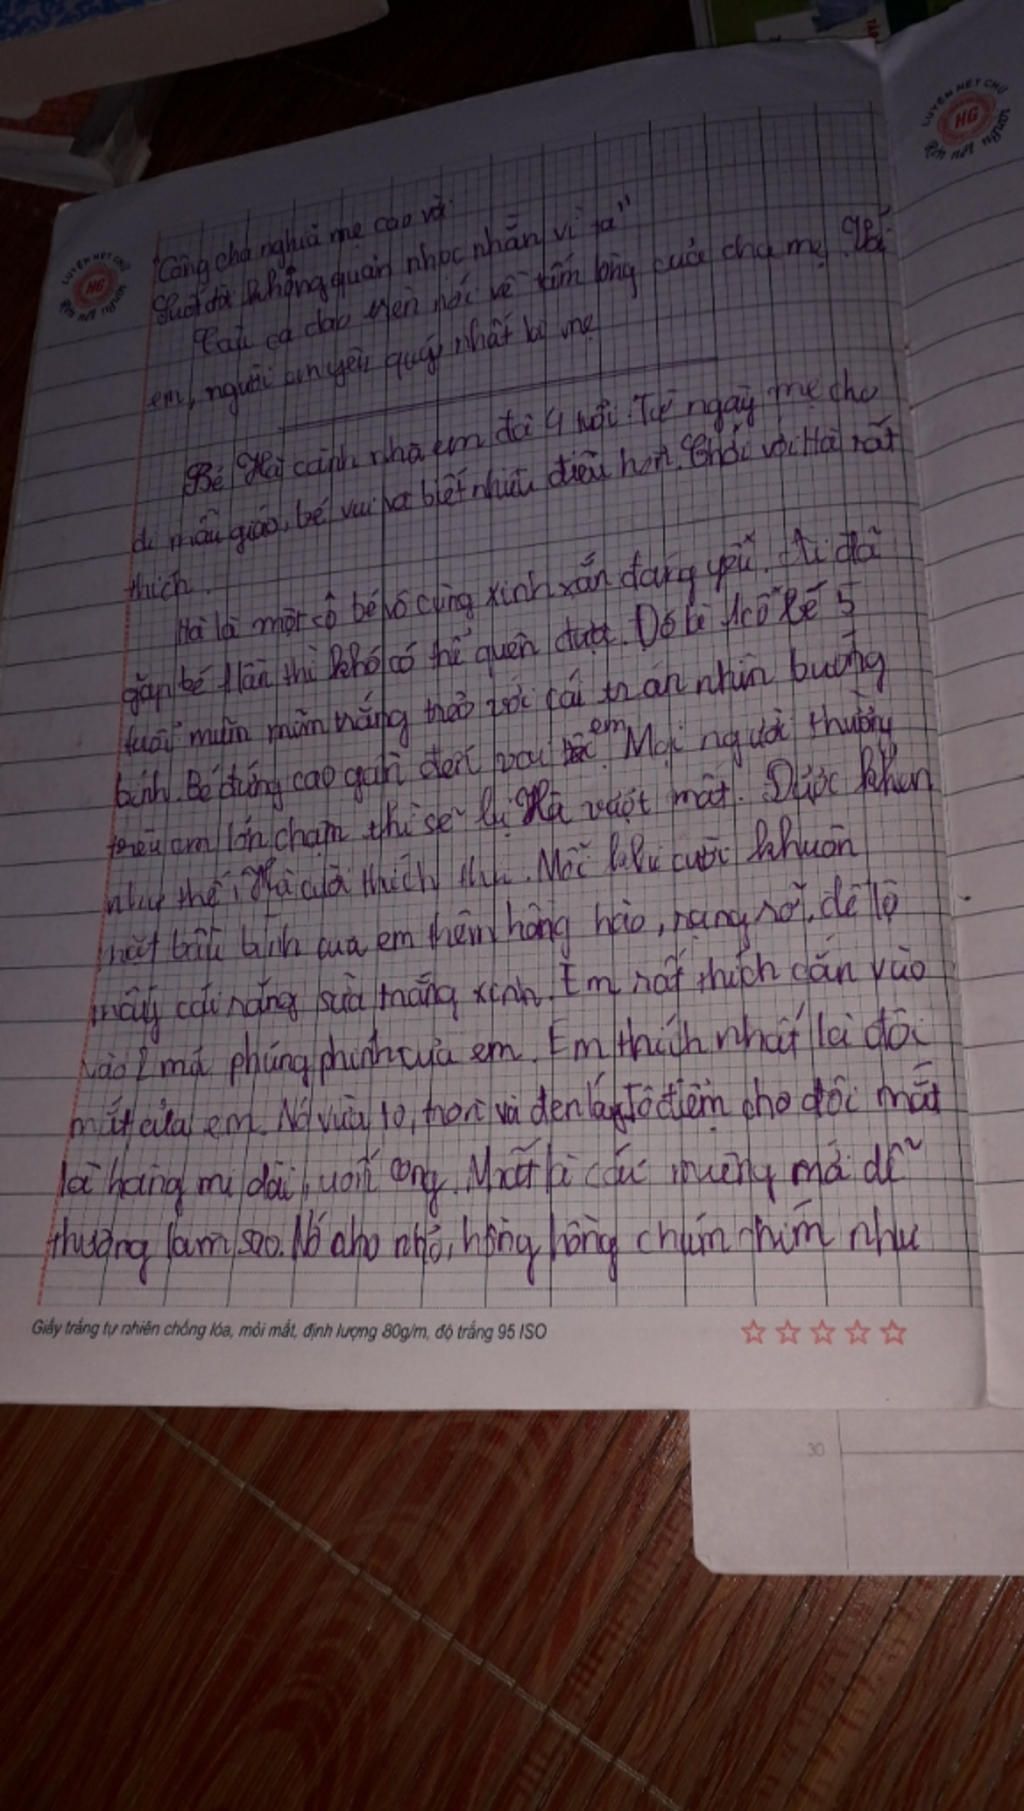 LUYỆN NÉT CHỮ
HG
Rèn nết người
LUYỆN NÉT CHỮ
HG
Rèn nết người
"Công cha nghĩa mẹ cao vời
không quản nhọc nhằn vì ta"
Câu ca dao trên nói về tấm lòng của cha mẹ. Với
em, người em yêu quý nhất là mẹ
Bé Hà cạnh nhà em đã 4 tuổi. Từ ngày mẹ cho
đi mẫu giáo, bé vui và biết nhiều điều hơn. Chơi với Hà rất
thích.
Hà là một cô bé vô cùng xinh xắn đáng yêu. Ai đã
gặp bé 1 lần thì khó có thể quên được. Đó là 1 cô bé 5
tuổi mũm mĩm trắng trẻo với cái trán nhìn bướng
bỉnh. Bé đứng cao gần đến vai em. Mọi người thường
em lớn chậm thì sẽ bị Hà vượt mặt. Được khen
như thế, Hà thích thú. Mỗi khi cười khuôn
mặt bầu bĩnh của em thêm hồng hào, rạng rỡ, để lộ
mấy cái răng sữa trắng xinh. Em rất thích cắn vào
vào 2 má phúng phính của em. Em thích nhất là đôi
mắt của em. Nó vừa to, tròn và đen láy. Tô điểm cho đôi mắt
là hàng mi dài, uốn cong. là cái miệng mà dễ
thương làm sao. Nó nho nhỏ, hồng hồng chúm chím như
Giấy trắng tự nhiên chống lóa, mỏi mắt, định lượng 80g/m, độ trắng 95 ISO
30